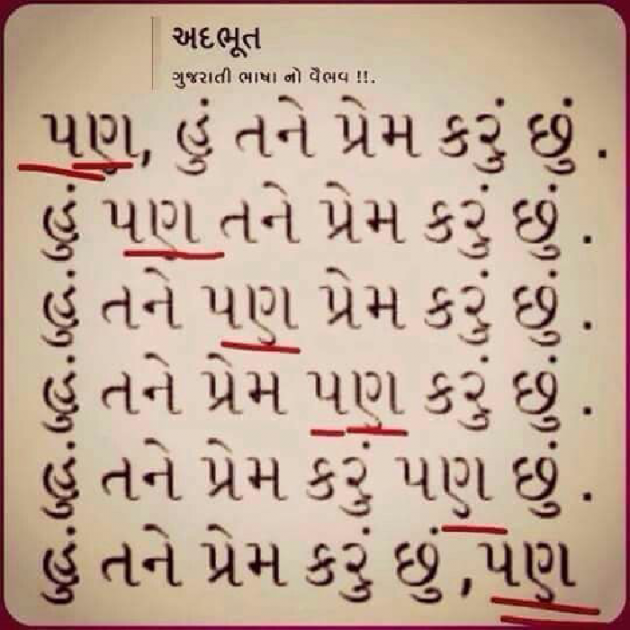 અદભૂત
ગુજરાતી ભાષા નો વૈભવ !!.
પણ, હું તને પ્રેમ કરું છું .
હું પણ તને પ્રેમ કરું છું .
હું તને પણ પ્રેમ કરું છું .
હું તને પ્રેમ પણ કરું છું .
હું તને પ્રેમ કરું પણ છું .
હું તને પ્રેમ કરું છું ,પણ